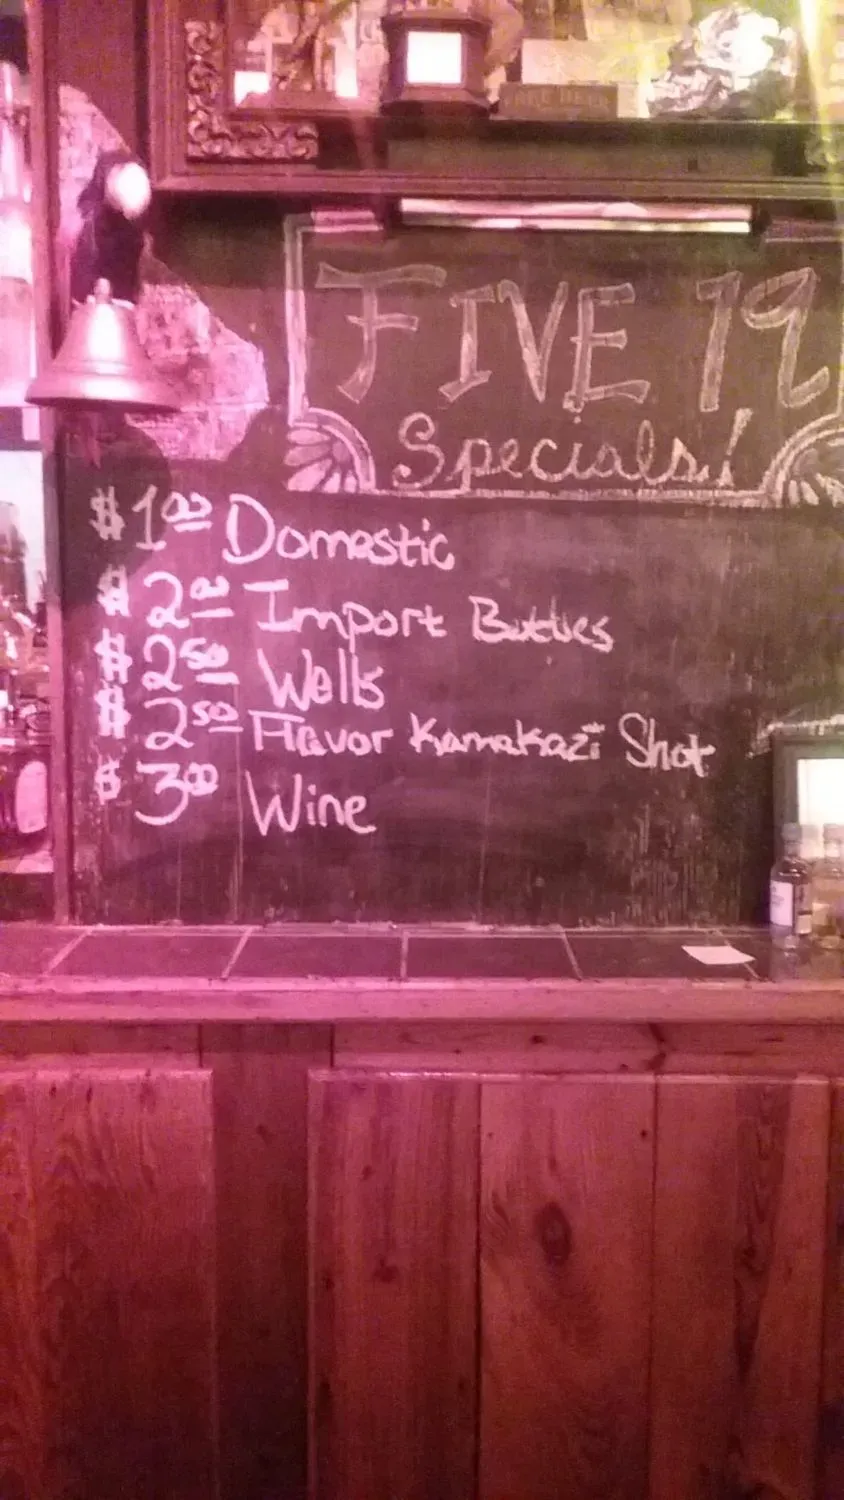 FREE BEER
FIVE 19
Specials!
$1.00 Domestic
$2.00 Import Bottles
$2.50 Wells
$2.50 Flavor Kamakazi Shot
$3.00 Wine